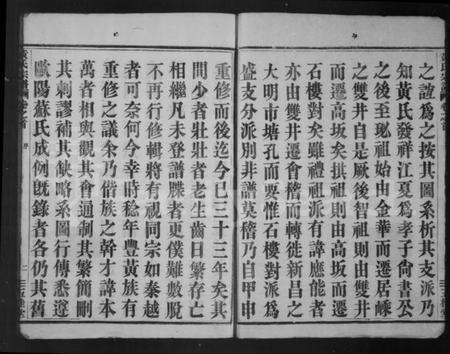 之誼爲之按其圖系析其支派乃
知黃氏發祥江夏爲孝子尙書公
之後至琁祖始由金華而遷居嵊
之雙井自是厥後智祖則由雙井
而遷高坂矣拱祖則由高坂而遷
石樓對矣雖禮祖派有諱應能者
亦由雙井遷會稽而轉徙新昌之
大明市塘孔而要惟石樓對派爲
盛支分派別非譜莫稽乃自甲申
重修而後迄今已三十三年矣其
間少者壯壯者老生齒日繁存亡
相繼凡未登譜牒者更僕難數脫
不再行修輯將有視同宗如秦越
者可奈何今幸時稔年豐黃族有
重修之議余乃偕族之幹才諱本
萬者相與觀其會通制其繁簡刪
其剩謬補其缺略系圖行傳悉遵
歐陽蘇氏成例旣錄者各仍其舊